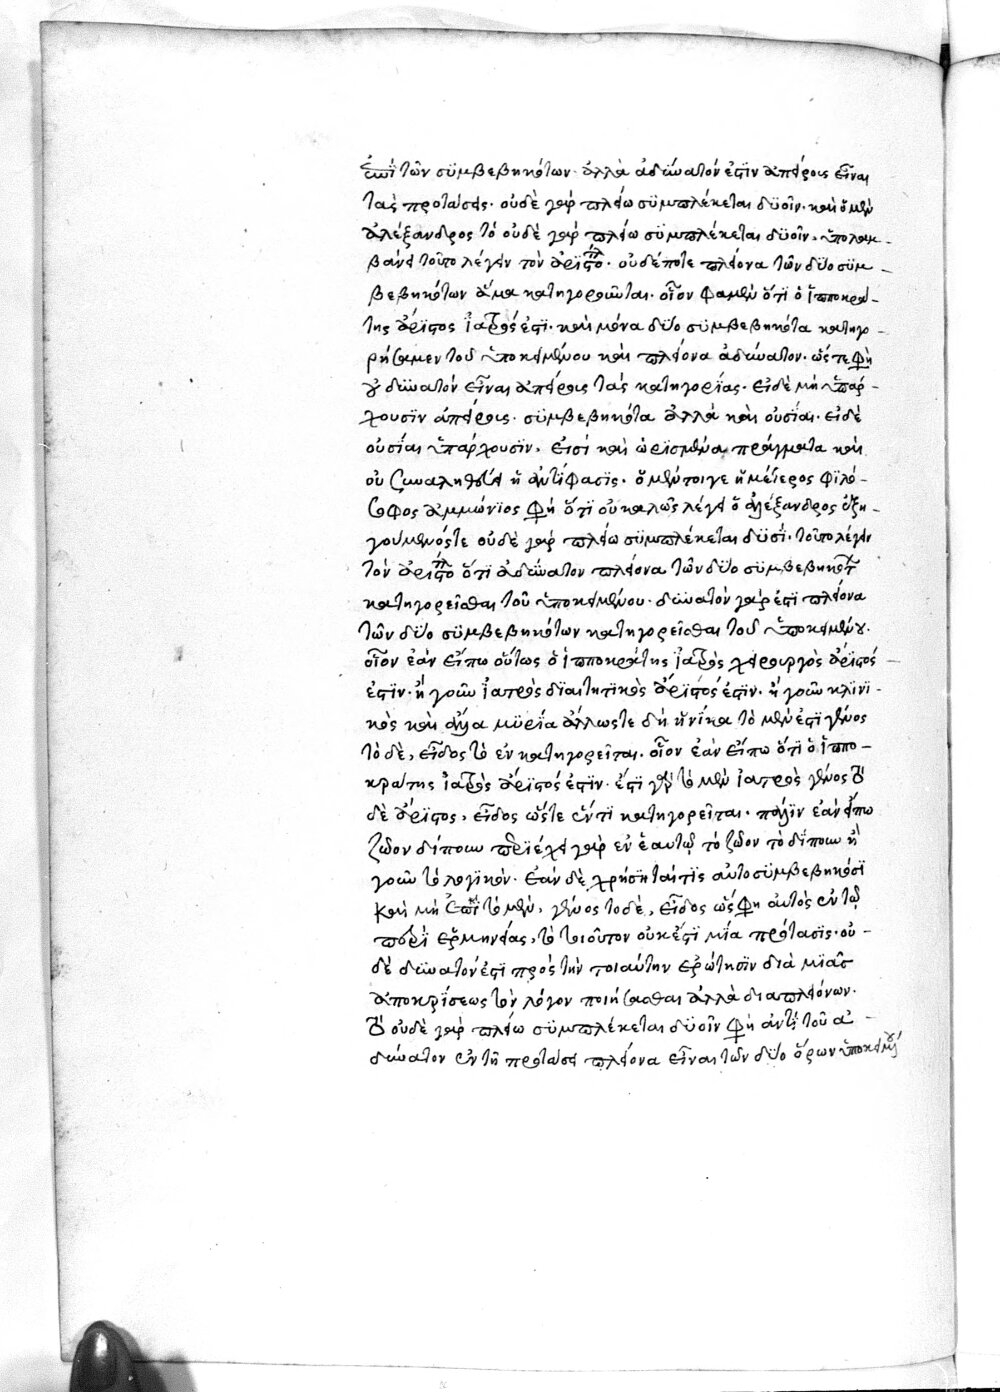 ἐπὶ τῶν συμβεβηκότων· ἀλλὰ ἀδύνατόν ἐστιν ἀπείροις εἶναι
τὰς προτάσεις· οὐδὲ γὰρ πλείω συμπλέκεται δυοῖν· καὶ ὁ μὲν
ἀλέξανδρος τὸ οὐδὲ γὰρ πλείω συμπλέκεται δυοῖν, ὑπολαμ-
βάνει τοῦτο λέγειν τὸν ἀριστο τλ· οὐδέποτε πλείονα τῶν δύο συμ-
βεβηκότων ἅμα κατηγοροῦνται· οἷον φαμὲν ὅτι ὁ ἱπποκρά-
της ἄριστος ἰατρός ἐστι· καὶ μόνα δύο συμβεβηκότα κατηγο-
ρήσαμεν τοῦ ὑποκειμένου καὶ πλείονα ἀδύνατον· ὥστε φη
οὐ δυνατόν εἶναι ἀπείροις τὰς κατηγορίας· εἰ δὲ μὴ ὑπάρ-
χουσιν ἀπείροις· συμβεβηκότα ἀλλὰ καὶ οὐσίαι· εἰ δὲ
οὐσίαι ὑπάρχουσιν, εἰσὶ καὶ ὡρισμένα πράγματα καὶ
οὐ συναληθεύει ἡ ἀντίφασις· ὁ μέντοιγε ἡμέτερος φιλό-
σοφος ἀμμώνιος φη ὅτι οὐ καλῶς λέγει ὁ ἀλέξανδρος ἐξη-
γούμενός τε οὐδὲ γὰρ πλείω συμπλέκεται δυσΐ· τοῦτο λέγειν
τὸν ἀριστο τλ ὅτι ἀδύνατον πλείονα τῶν δύο συμβεβηκοτ
κατηγορεῖσθαι τοῦ ὑποκειμένου· δυνατὸν γάρ ἐστι πλείονα
τῶν δύο συμβεβηκότων κατηγορεῖσθαι τοῦ ὑποκειμένου·
οἷον ἐὰν εἴπω οὕτως ὁ ἱπποκράτης ἰατρὸς χειρουργὸς ἄριστός
ἐστιν· ἢ γοῦν ἰατρὸς διαιτητικὸς ἄριστός ἐστιν· ἢ γοῦν κλινι-
κὸς καὶ ἄλλα μυρία ἄλλως τε δὴ ἡνίκα τὸ μὲν ἐστι γένος
τὸ δὲ, εἶδος τὸ ἓν κατηγορεῖται· οἷον ἐὰν εἴπω ὅτι ὁ ἱππο-
κράτης ἰατρὸς ἄριστός ἐστιν· ἔστι γὰρ τὸ μὲν ἰατρὸς γένος τὸ
δὲ ἄριστος, εἶδος ὥστε ἕν τι κατηγορεῖται· πάλιν ἐὰν εἴπω
ζῶον δίπουν περιέχει γὰρ ἐν ἑαυτῷ τὸ ζῶον τὸ δίπουν ἢ
γοῦν τὸ λογικόν· ἐὰν δὲ χρήσηταί τις αὐτο συμβεβηκόσι
καὶ μὴ ἐστι τὸ μὲν, γένος τὸ δὲ, εἶδος ὥς φη αὐτὸς ἐν τῷ
περὶ ἑρμηνείας, τὸ τοιοῦτον οὐκ ἔστι μία πρότασις· οὐ-
δὲ δυνατόν ἐστι πρὸς τὴν τοιαύτην ἐρώτησιν διὰ μιᾶς
ἀποκρίσεως τὸν λόγον ποιήσασθαι ἀλλὰ διαπλειόνων·
τὸ οὐδὲ γὰρ πλείω συμπλέκεται δυοῖν φη ἀντὶ τοῦ ἀ-
δύνατον ἐν τῇ προτάσει πλείονα εἶναι τῶν δύο ὅρων ὑποκειμέ